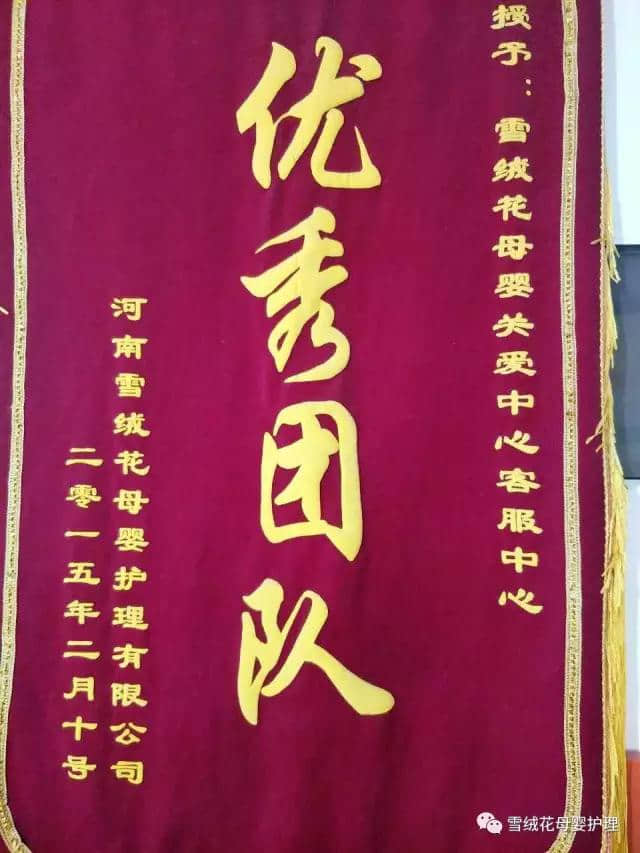 授予：雪绒花母婴关爱中心客服中心
优秀团队
河南雪绒花母婴护理有限公司
二零一五年二月十号
雪绒花母婴护理